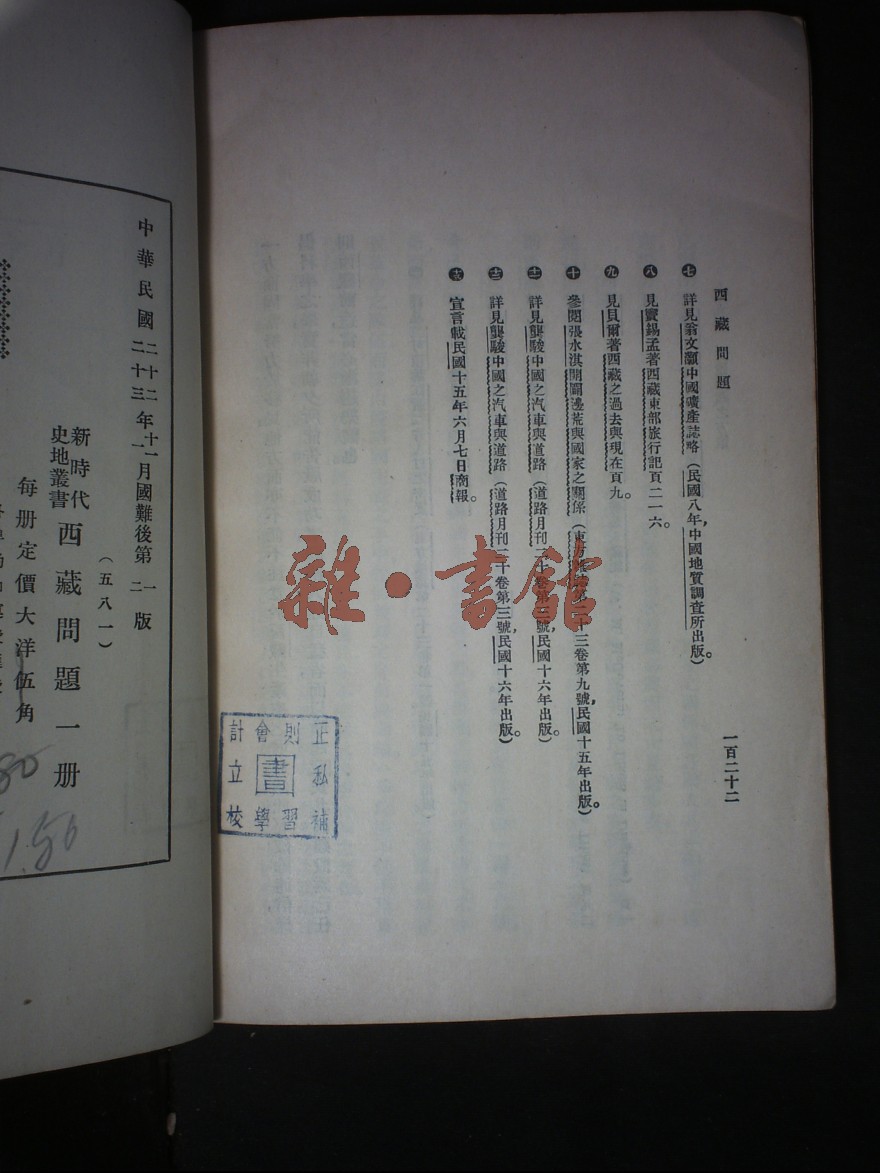 西藏問題
一百二十二
七 詳見翁文灝中國礦產誌略（民國八年，中國地質調查所出版。）
八 見竇錫孟著西藏東部旅行記頁二一六。
九 見貝爾著西藏之過去與現在頁九。
十 參閱張水淇開闢邊荒與國家之關係（東方雜誌第二十三卷第九號，民國十五年出版。）
十一 詳見龔駿中國之汽車與道路（道路月刊二十卷第三號，民國十六年出版。）
十二 詳見龔駿中國之汽車與道路（道路月刊二十卷第三號，民國十六年出版。）
宣言載民國十五年六月七日商報。
雜·書館
正私補
則習
會書學
計立校
中華民國二十二年十一月國難後第一版
二十三 一 二
（五八一）
新時代史地叢書 西藏問題一册
每册定價大洋伍角
1.50